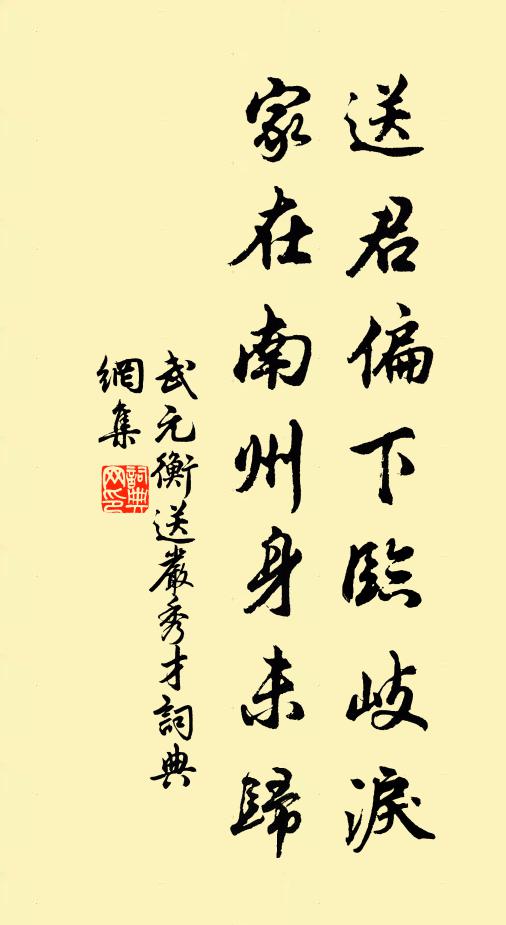 送君偏下臨岐淚
家在南州身未歸
武元衡送嚴秀才詞典
網集
詞典網印